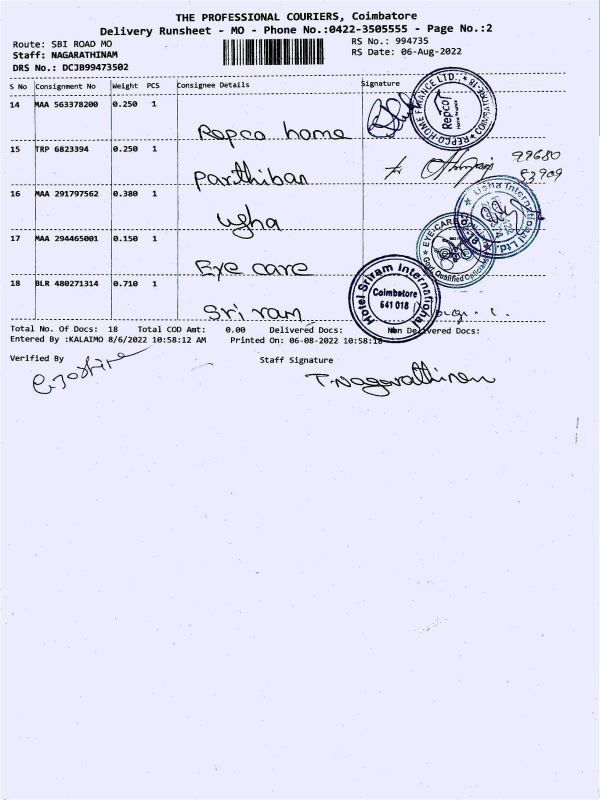 THE PROFESSIONAL COURIERS, Coimbatore
Delivery Runsheet - MO - Phone No.:0422-3505555 - Page No.:2
Route: SBI ROAD MO RS No.: 994735
Staff: NAGARATHINAM RS Date: 06-Aug-2022
DRS No.: DCJB99473502
S No Consignment No Weight PCS Consignee Details Signature
14 MAA 563378200 0.250 1
Repco home
REPCO-HOME FINANCE LTD., COIMBATORE-18
Repco
Home Finance
15 TRP 6823394 0.250 1
Parthiban
99680
53909
16 MAA 291797562 0.380 1
Usha
Usha International Ltd.
17 MAA 294465001 0.150 1
Eye care
EYE-CARE
Govt. Qualified
18 BLR 480271314 0.710 1
Sri ram
Hotel Sriram International
Coimbatore
641 018
Total No. Of Docs: 18 Total COD Amt: 0.00 Delivered Docs: Non Delivered Docs:
Entered By :KALAIMO 8/6/2022 10:58:12 AM Printed On: 06-08-2022 10:58:18
Verified By Staff Signature
T.Nagarathinam